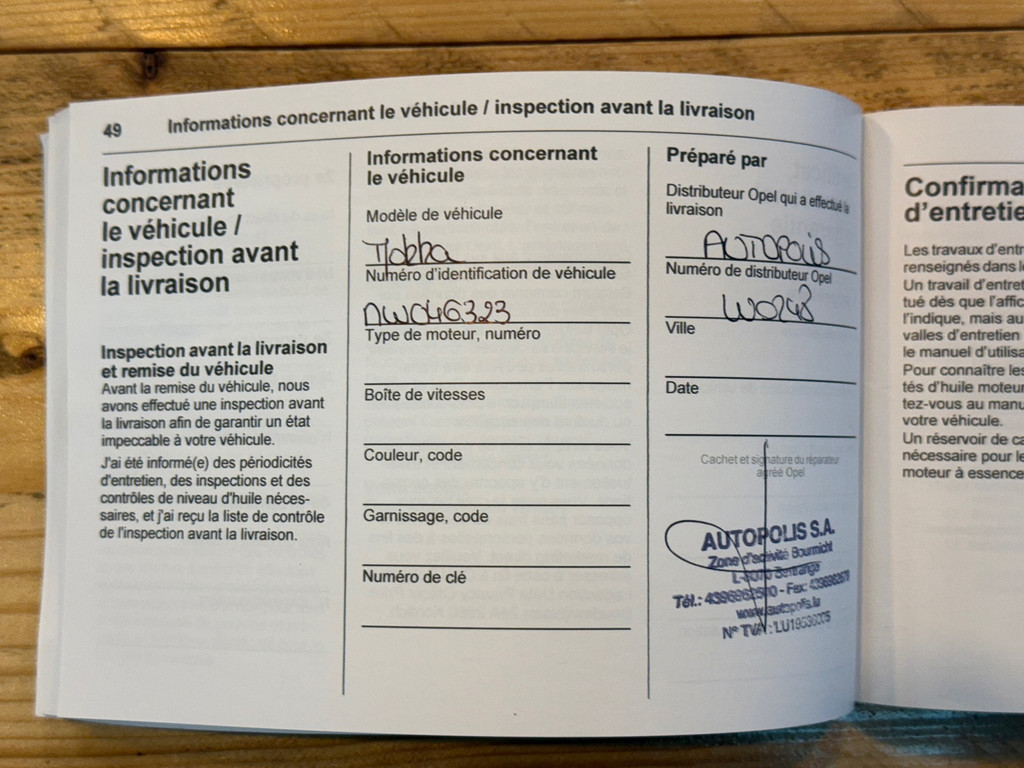 49 Informations concernant le véhicule / inspection avant la livraison
Informations
concernant
le véhicule /
inspection avant
la livraison
Inspection avant la livraison
et remise du véhicule
Avant la remise du véhicule, nous
avons effectué une inspection avant
la livraison afin de garantir un état
impeccable à votre véhicule.
J'ai été informé(e) des périodicités
d'entretien, des inspections et des
contrôles de niveau d'huile néces-
saires, et j'ai reçu la liste de contrôle
de l'inspection avant la livraison.
Informations concernant
le véhicule
Modèle de véhicule
Mokka
Numéro d'identification de véhicule
NW046323
Type de moteur, numéro
Boîte de vitesses
Couleur, code
Garnissage, code
Numéro de clé
Préparé par
Distributeur Opel qui a effectué la
livraison
AUTOPOLIS
Numéro de distributeur Opel
W0248
Ville
Date
Cachet et signature du réparateur
agréé Opel
AUTOPOLIS S.A.
Zone d'activité Bourmicht
L-8070 Bertrange
Tél.: - Fax:
www.autopolis.lu
N° TVA :
Confirma
d'entretie
Les travaux d'entr
renseignés dans le
Un travail d'entret
tué dès que l'affic
l'indique, mais au
valles d'entretien
le manuel d'utilisa
Pour connaître les
tés d'huile moteur
tez-vous au manu
votre véhicule.
Un réservoir de ca
nécessaire pour le
moteur à essence